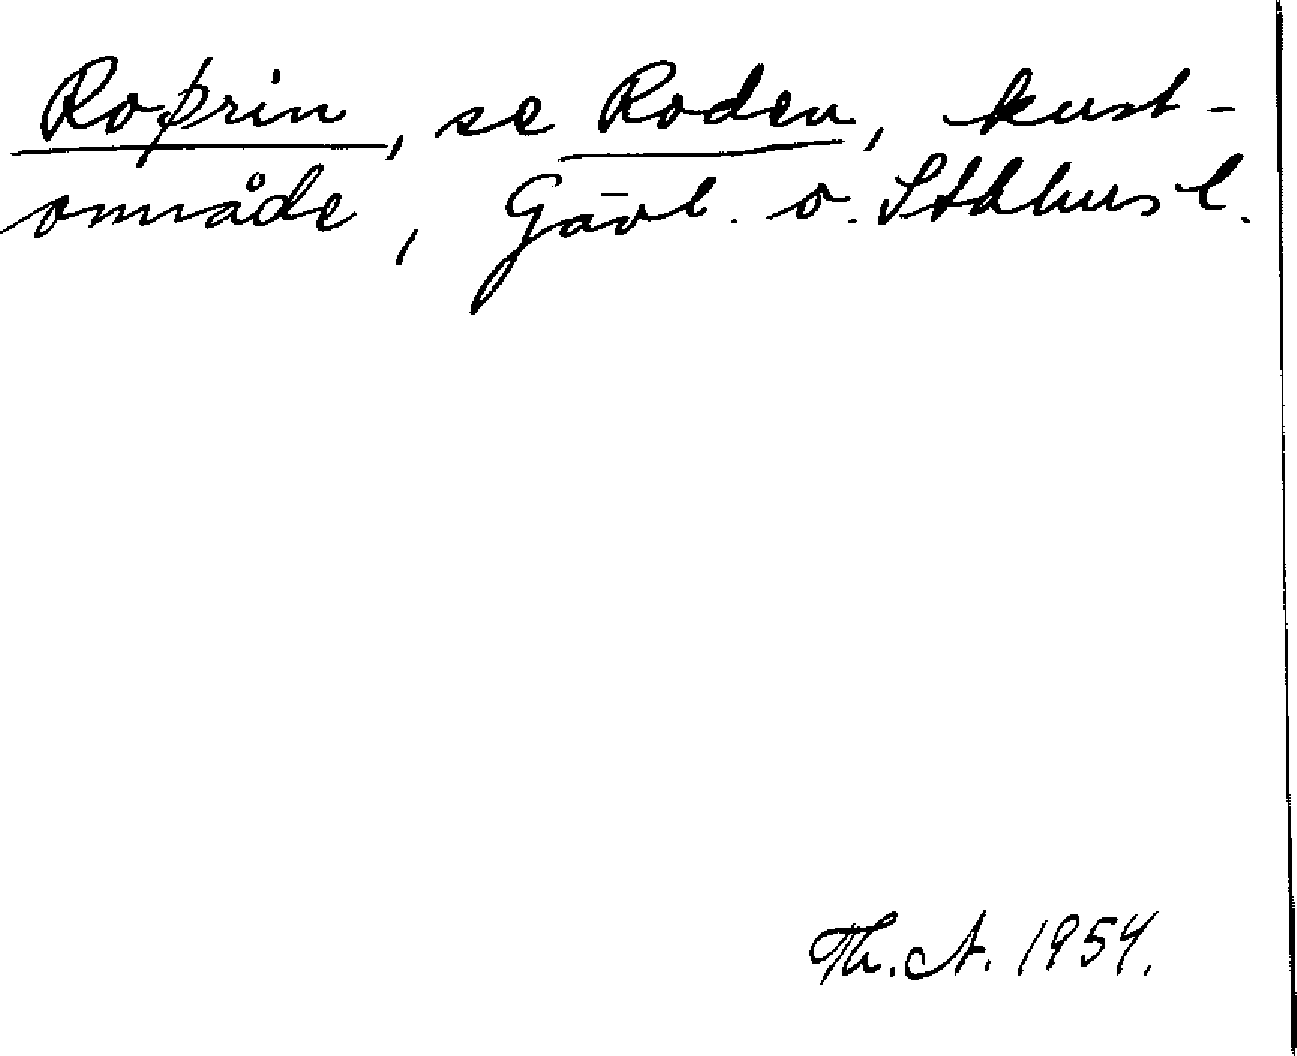 Roþrin, se Roden, kust-
område, Gävl. o. Sthlms l.
Th. A. 1954.